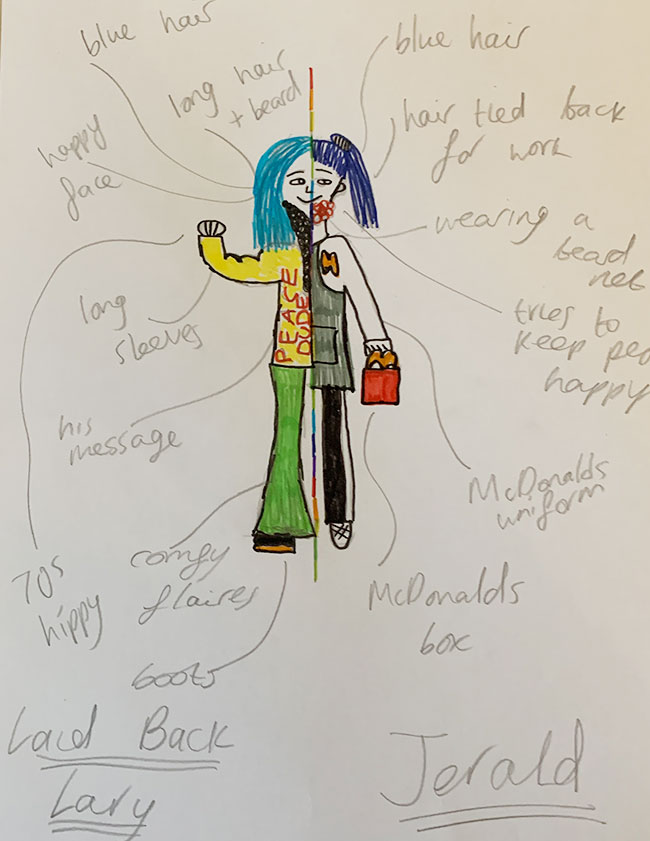 blue hair
long hair
+ beard
happy
face
long
sleeves
his
message
70s
hippy
comfy
flaires
boots
Laid Back
Lary
PEASE
DUDE
blue hair
hair tied back
for work
wearing a
beard
net
tries to
keep peo
happy
McDonalds
uniform
McDonalds
box
Jerald